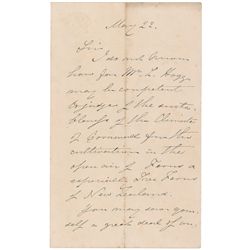 May 22.
Sir,
I do not know
how far Mr. L. Hogg
may be competent
to judge of the suita-
bleness of the Climate
of Cornwall for the
cultivation in the
open air of Ferns &
especially Tree Ferns
of New Zealand.
You may save your-
self a great deal of